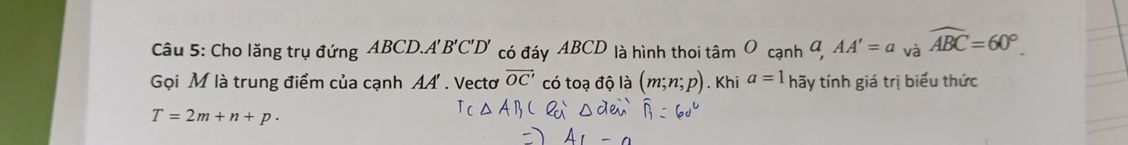 Câu 5: Cho lăng trụ đứng ABCD.A'B'C'D' có đáy ABCD là hình thoi tâm O cạnh a, AA' = a và \widehat{ABC} = 60°.
Gọi M là trung điểm của cạnh AA'. Vectơ \overrightarrow{OC'} có toạ độ là (m;n;p). Khi a = 1 hãy tính giá trị biểu thức
T = 2m + n + p.
Δ ABC là Δ đều B̂ = 60°
=) AC = a